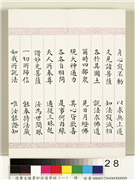 身心寂不動 以求無上道
又見諸菩薩 知法寂滅相
各於其國土 說法求佛道
爾時四部眾 見日月燈佛
現大神通力 其心皆歡喜
各各自相問 是事何因緣
天人所奉尊 適從三昧起
讚妙光菩薩 汝為世間眼
一切所歸信 能奉持法藏
如我所說法 唯汝能證知
28